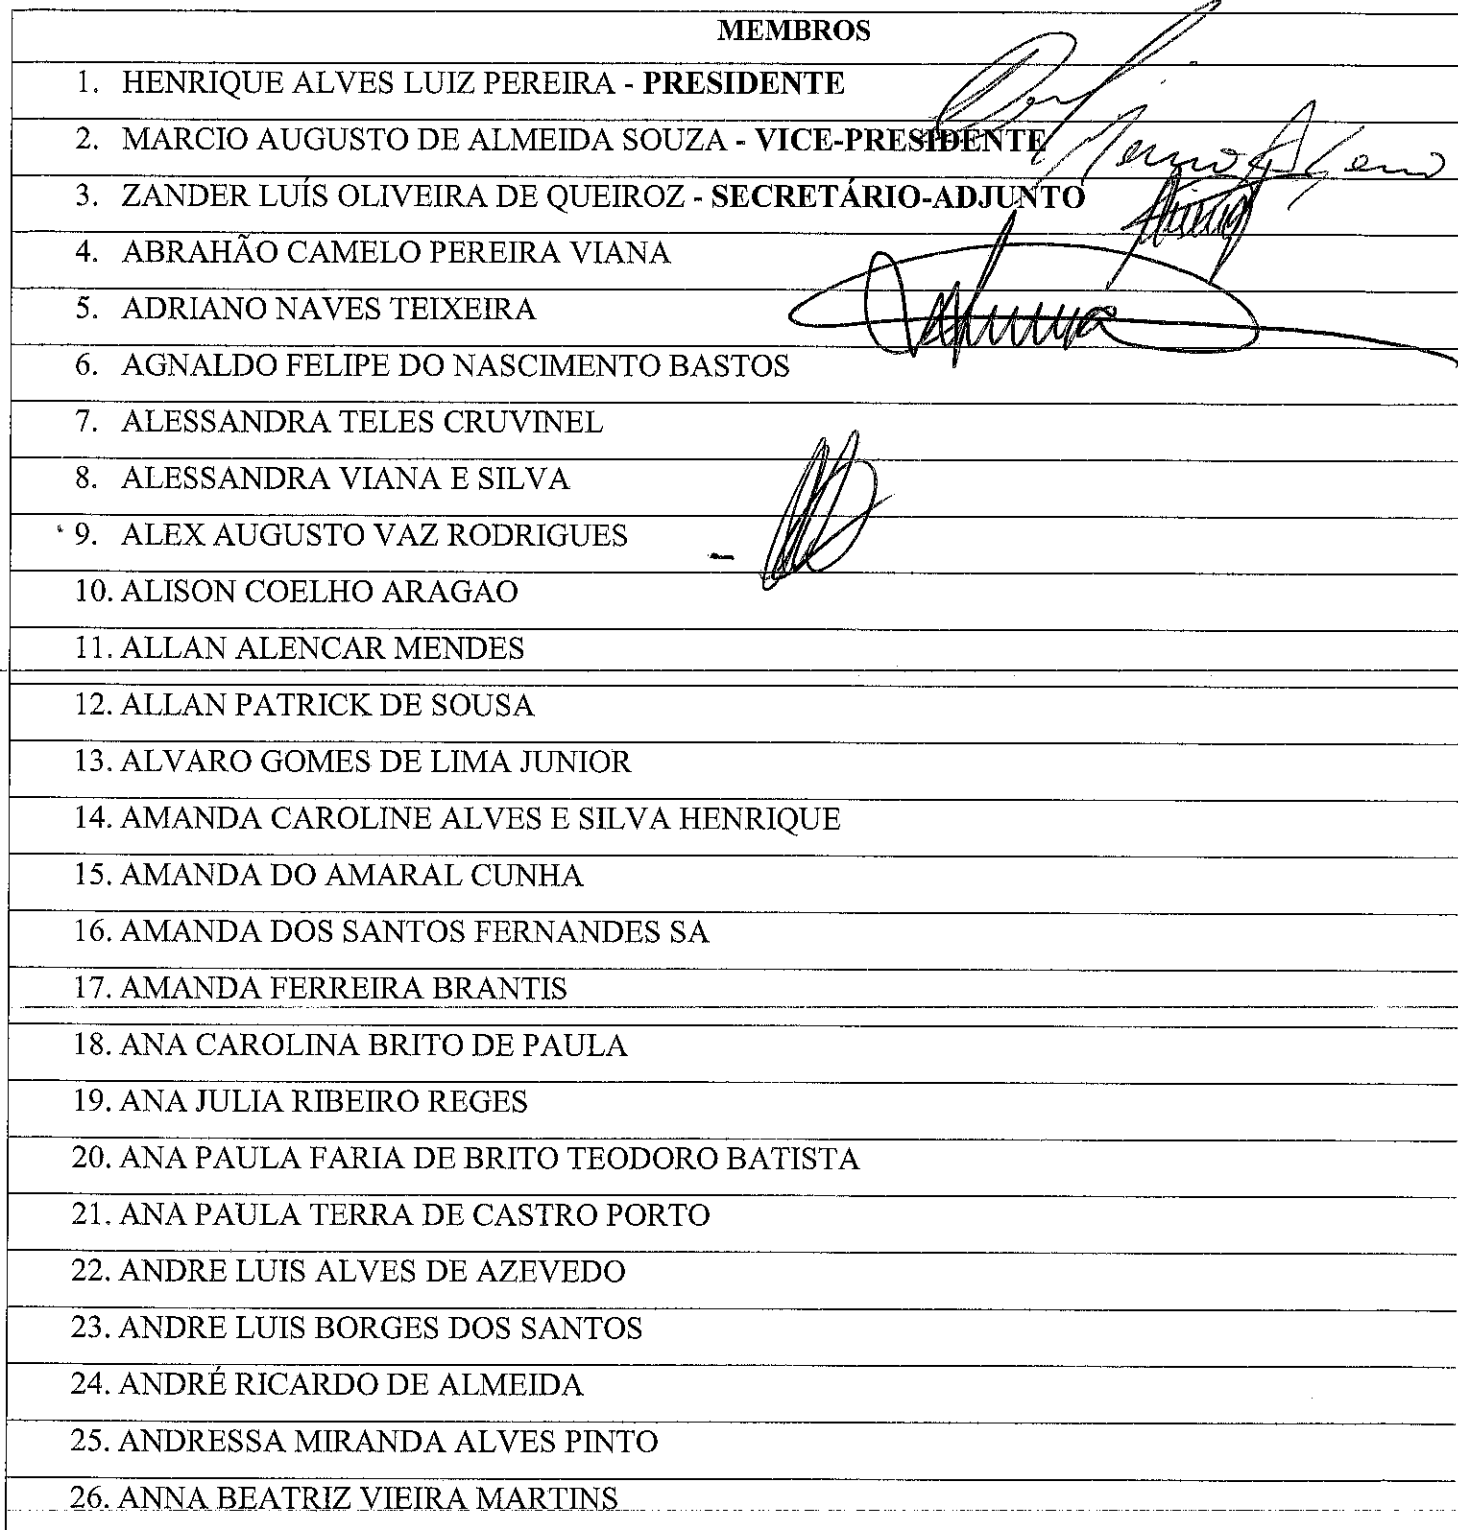 MEMBROS
1. HENRIQUE ALVES LUIZ PEREIRA - PRESIDENTE
2. MARCIO AUGUSTO DE ALMEIDA SOUZA - VICE-PRESIDENTE
3. ZANDER LUÍS OLIVEIRA DE QUEIROZ - SECRETÁRIO-ADJUNTO
4. ABRAHÃO CAMELO PEREIRA VIANA
5. ADRIANO NAVES TEIXEIRA
6. AGNALDO FELIPE DO NASCIMENTO BASTOS
7. ALESSANDRA TELES CRUVINEL
8. ALESSANDRA VIANA E SILVA
9. ALEX AUGUSTO VAZ RODRIGUES
10. ALISON COELHO ARAGAO
11. ALLAN ALENCAR MENDES
12. ALLAN PATRICK DE SOUSA
13. ALVARO GOMES DE LIMA JUNIOR
14. AMANDA CAROLINE ALVES E SILVA HENRIQUE
15. AMANDA DO AMARAL CUNHA
16. AMANDA DOS SANTOS FERNANDES SA
17. AMANDA FERREIRA BRANTIS
18. ANA CAROLINA BRITO DE PAULA
19. ANA JULIA RIBEIRO REGES
20. ANA PAULA FARIA DE BRITO TEODORO BATISTA
21. ANA PAULA TERRA DE CASTRO PORTO
22. ANDRE LUIS ALVES DE AZEVEDO
23. ANDRE LUIS BORGES DOS SANTOS
24. ANDRÉ RICARDO DE ALMEIDA
25. ANDRESSA MIRANDA ALVES PINTO
26. ANNA BEATRIZ VIEIRA MARTINS